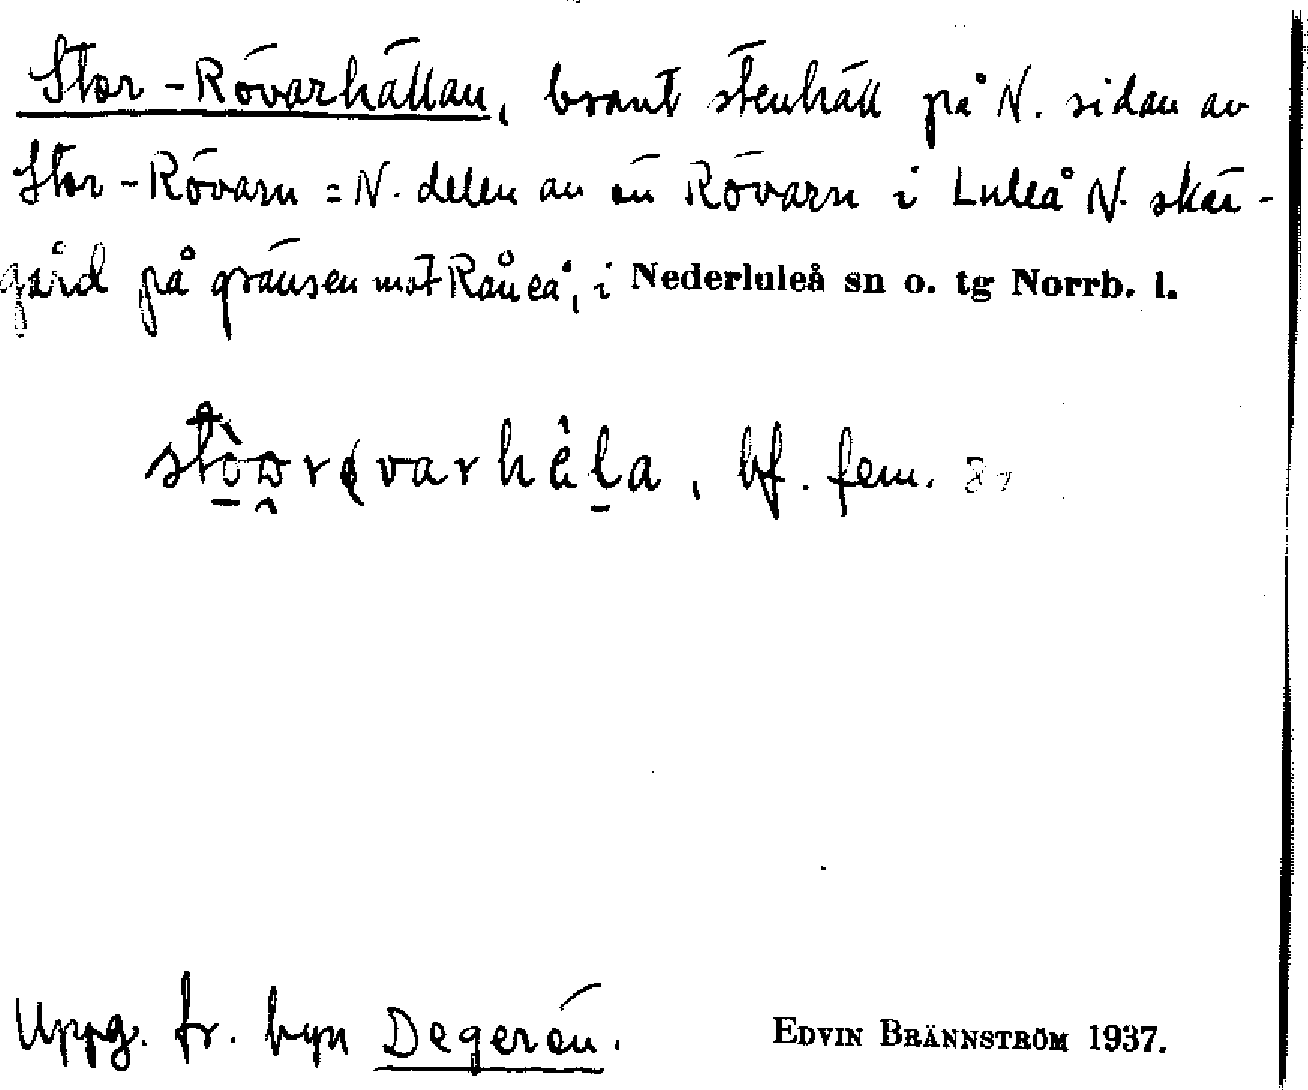 Stor-Rövarhällan, brant stenhäll på N. sidan av
Stor-Rövarn = N. delen av ön Rövarn i Luleå N. skär-
gård på gränsen mot Råneå, i Nederluleå sn o. tg Norrb. l.
bf. fem.
Uppg. fr. byn Degerön.
EDVIN BRÄNNSTRÖM 1937.